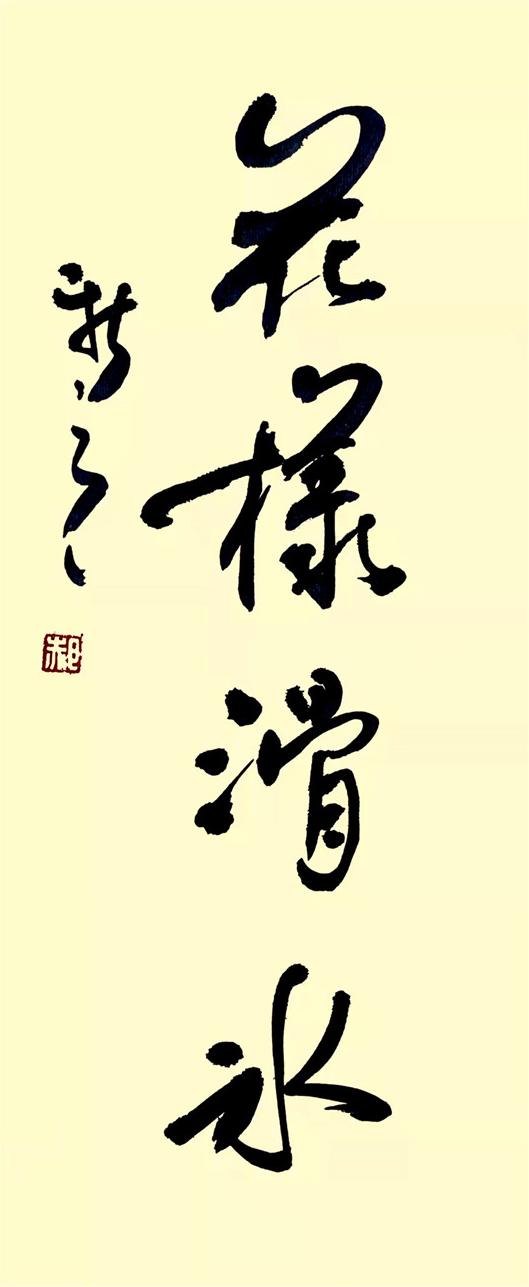 花樣滑冰